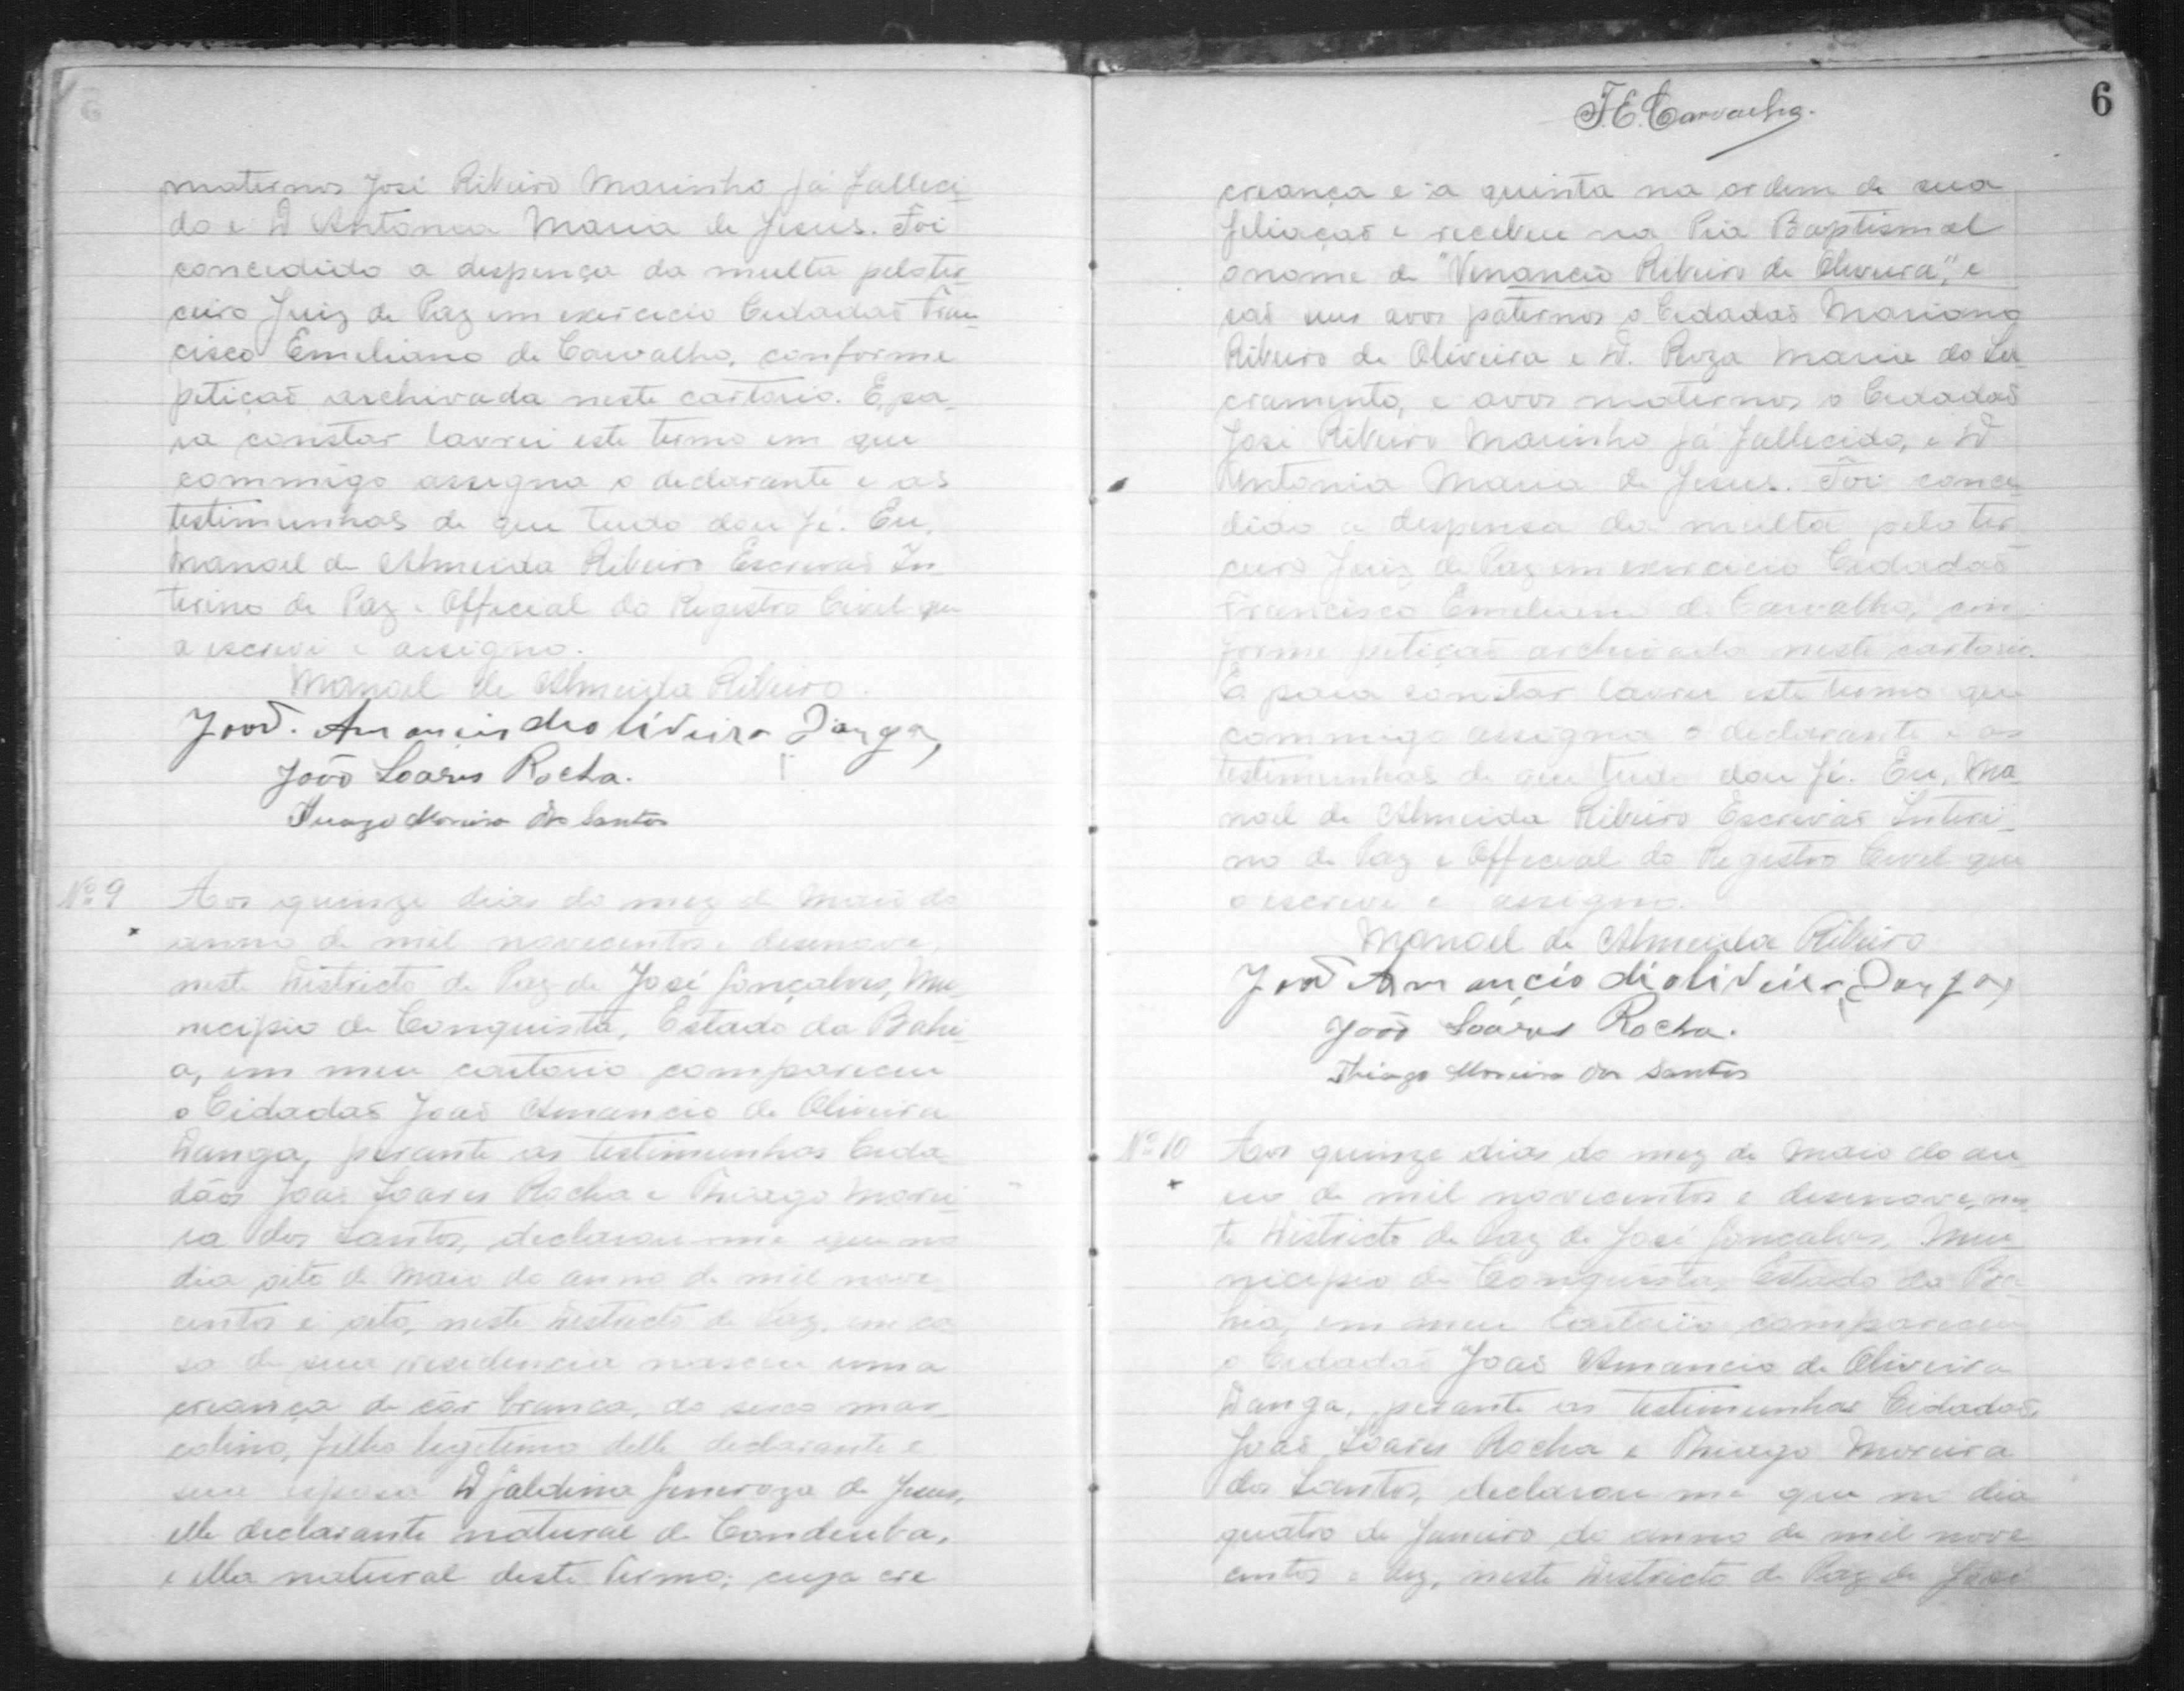 maternos José Ribeiro Marinho já falleci-
do e D Antonia Maria de Jesus. Foi
concedido a despença da multa pelo ter-
ceiro Juiz de Paz em exercicio Cidadaõ Fran-
cisco Emeliano de Carvalho, conforme
petiçaõ archivada neste cartorio. E, pa-
ra constar lavrei este termo em que
commigo assigna o declarante e as
testimunhas de que tudo dou fé. Eu,
Manoel de Almeida Ribeiro Escrivaõ In-
terino de Paz e Official do Registro Civel que
a escrevi e assigno.
Manoel de Almeida Ribeiro.
Joaõ. Amancio de oliveira Danga,
João Soares Rocha.
Thiago Moreira dos Santos
Nº 9 Aos quinze dias do mez de Maio do
anno de mil novecentos e desenove,
neste Districto de Paz de José Gonçalves, Mu-
nicipio de Conquista, Estado da Bahi-
a, em meu cartorio compareceu
o Cidadaõ Joaõ Amancio de Oliveira
Danga, perante as testimunhas Cida-
dãos Joaõ Soares Rocha e Thiago Morei-
ra dos Santos, declarou-me que no
dia oito de Maio do anno de mil nove-
centos e oito, neste Districto de Paz, em ca-
sa de sua residencia nasceu uma
creança de côr branca, do sexo mas-
colino, filho legitimo delle declarante e
sua esposa D Galdina Generoza de Jesus,
elle declarante natural de Condeuba,
e ella natural deste termo; cuja cre
F. E. Carvalho.
6
creança e a quinta na ordem de sua
filiaçaõ e recebeu na Pia Baptismal
o nome de "Venancio Ribeiro de Oliveira", e
saõ seus avos paternos o Cidadaõ Mariano
Ribeiro de Oliveira e D. Roza Maria do Sa-
cramento, e avos maternos o Cidadaõ
José Ribeiro Marinho já fallecido, e D
Antonia Maria de Jesus. Foi conce-
dido a despensa da multa pelo ter-
ceiro Juiz de Paz em exercicio Cidadaõ
Francisco Emeliano de Carvalho, con-
forme petiçaõ archivada neste cartorio.
E para constar lavrei este termo que
commigo assigna o declarante e as
testimunhas de que tudo dou fé. Eu, Ma-
noel de Almeida Ribeiro Escrivaõ Interi-
no de Paz e Official do Registro Civel que
o escrevi e assigno.
Manoel de Almeida Ribeiro
Joaõ Amancio de oliveira Danga,
João Soares Rocha.
Thiago Moreira dos Santos
Nº 10 Aos quinze dias do mez de Maio do an-
no de mil novecentos e desenove, nes-
te Districto de Paz de José Goncalves, Mu-
nicipio de Conquista, Estado da Ba-
hia, em meu Cartorio compareceu
o Cidadaõ Joaõ Amancio de Oliveira
Danga, perante as testimunhas Cidadaõs
Joaõ Soares Rocha e Thiago Moreira
dos Santos, declarou me que no dia
quatro de Janeiro do anno de mil nove
centos e dez, neste Districto de Paz de José